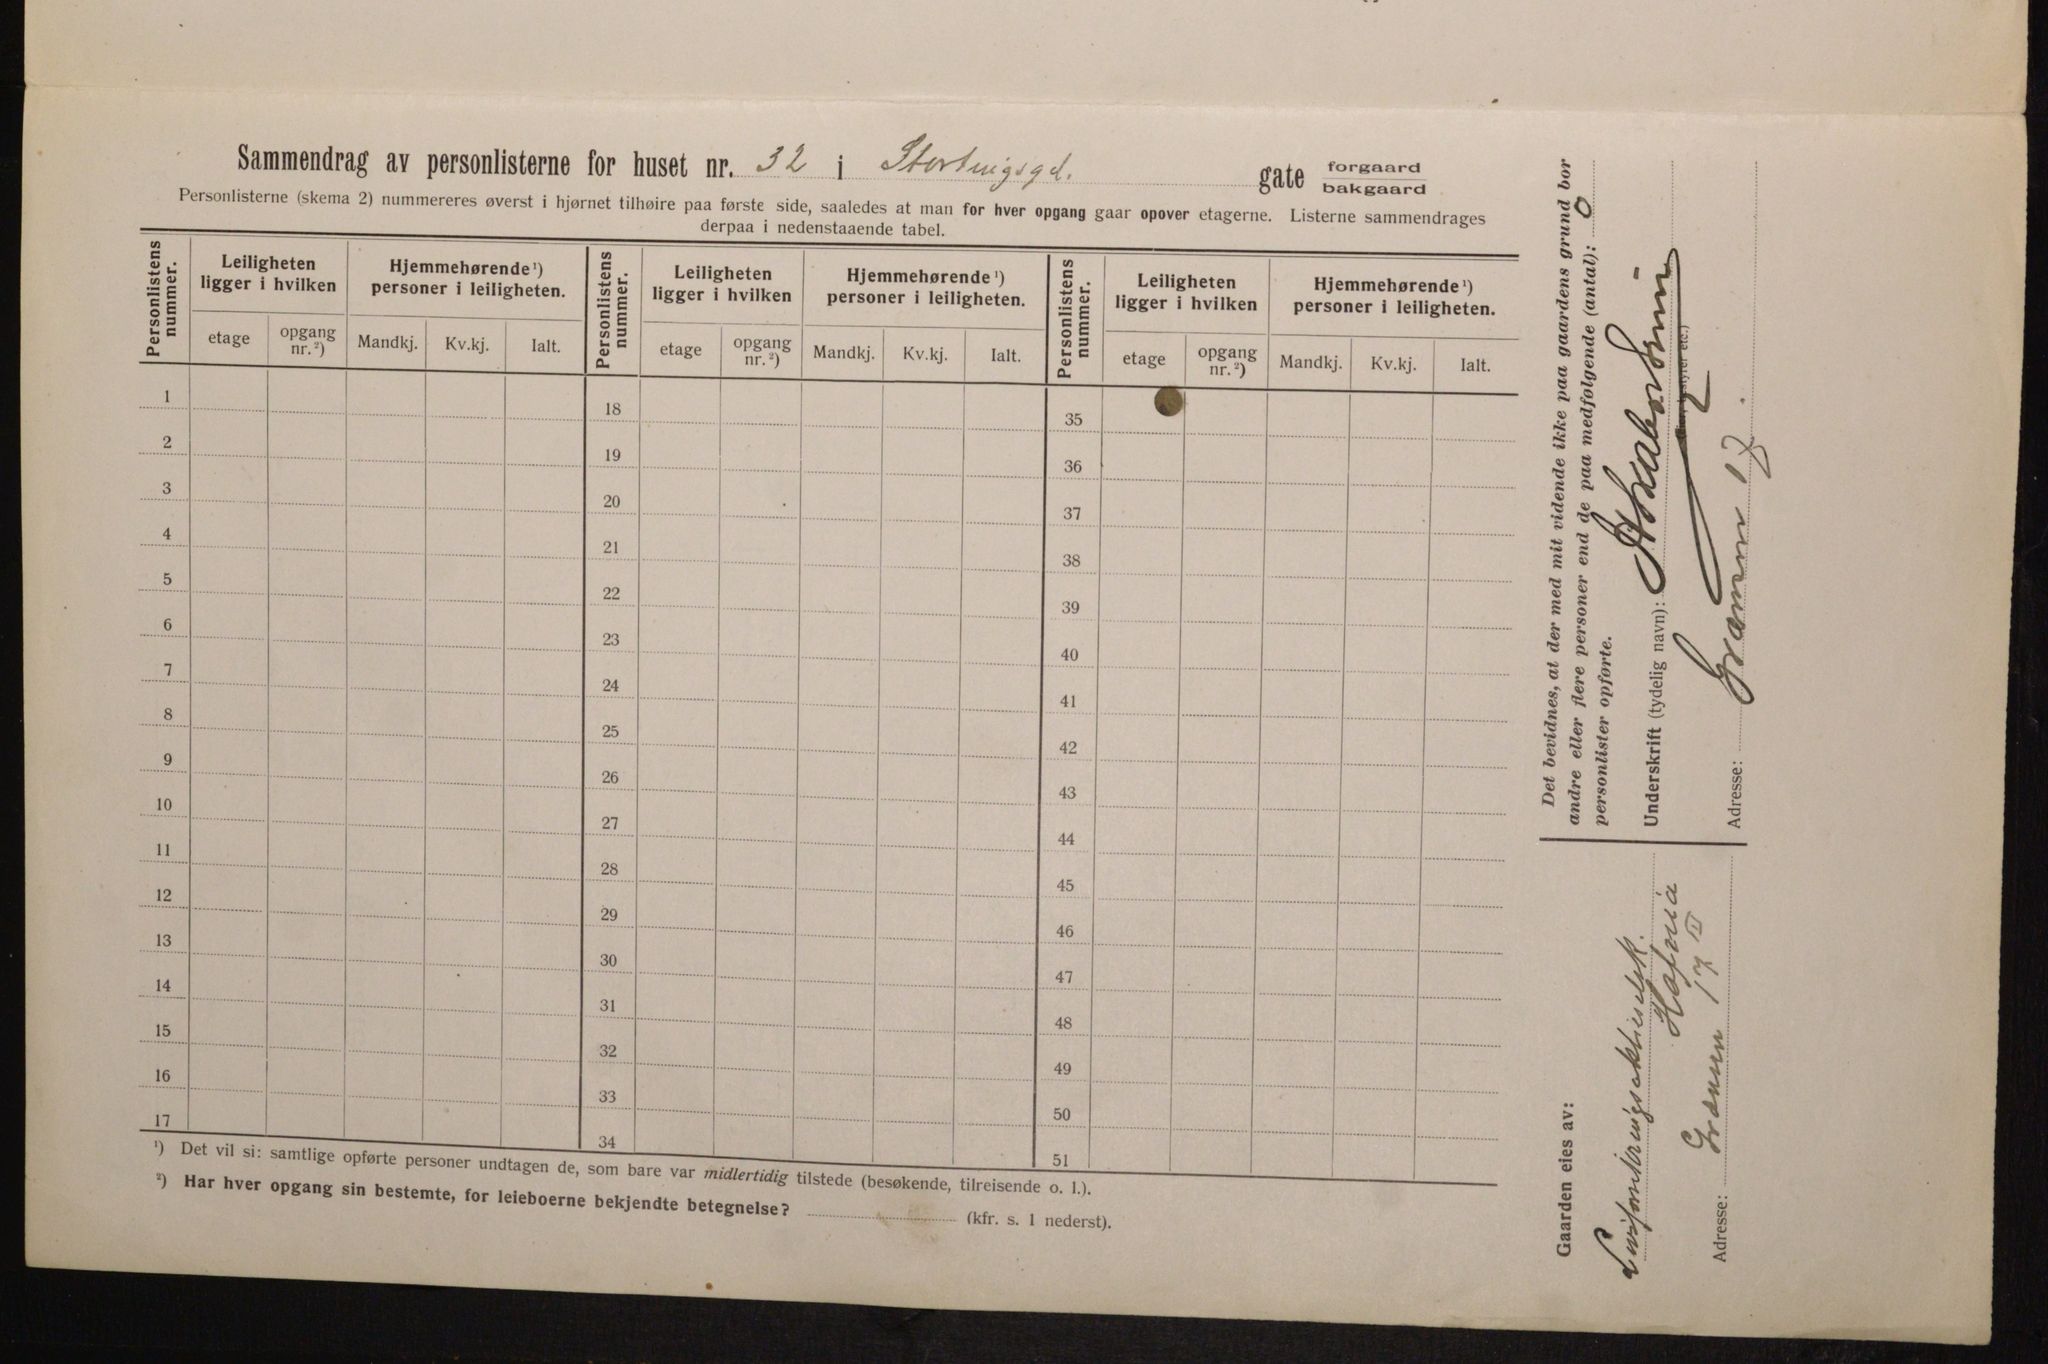 Sammendrag av personlisterne for huset nr. 32 i Stortingsgd. gate forgaard
bakgaard
Personlisterne (skema 2) nummereres øverst i hjørnet tilhøire paa første side, saaledes at man for hver opgang gaar opover etagerne. Listerne sammendrages
derpaa i nedenstaaende tabel.
Personlistens nummer. Leiligheten ligger i hvilken Hjemmehørende ¹) personer i leiligheten. Personlistens nummer. Leiligheten ligger i hvilken Hjemmehørende ¹) personer i leiligheten. Personlistens nummer. Leiligheten ligger i hvilken Hjemmehørende ¹) personer i leiligheten.
etage opgang nr. ²) Mandkj. Kv.kj. Ialt. etage opgang nr. ²) Mandkj. Kv.kj. Ialt. etage opgang nr. ²) Mandkj. Kv.kj. Ialt.
1 18 35
2 19 36
3 20 37
4 21 38
5 22 39
6 23 40
7 24 41
8 25 42
9 26 43
10 27 44
11 28 45
12 29 46
13 30 47
14 31 48
15 32 49
16 33 50
17 34 51
¹) Det vil si: samtlige opførte personer undtagen de, som bare var midlertidig tilstede (besøkende, tilreisende o. l.).
²) Har hver opgang sin bestemte, for leieboerne bekjendte betegnelse? (kfr. s. 1 nederst).
Det bevidnes, at der med mit vidende ikke paa gaardens grund bor
andre eller flere personer end de paa medfølgende (antal): 0
personlister opførte.
Underskrift (tydelig navn):
styrer etc.)
Adresse: Grænsen 17.
Gaarden eies av:
Livsforsikringsaktieselsk.
Hafnia
Adresse: Grænsen 17 II